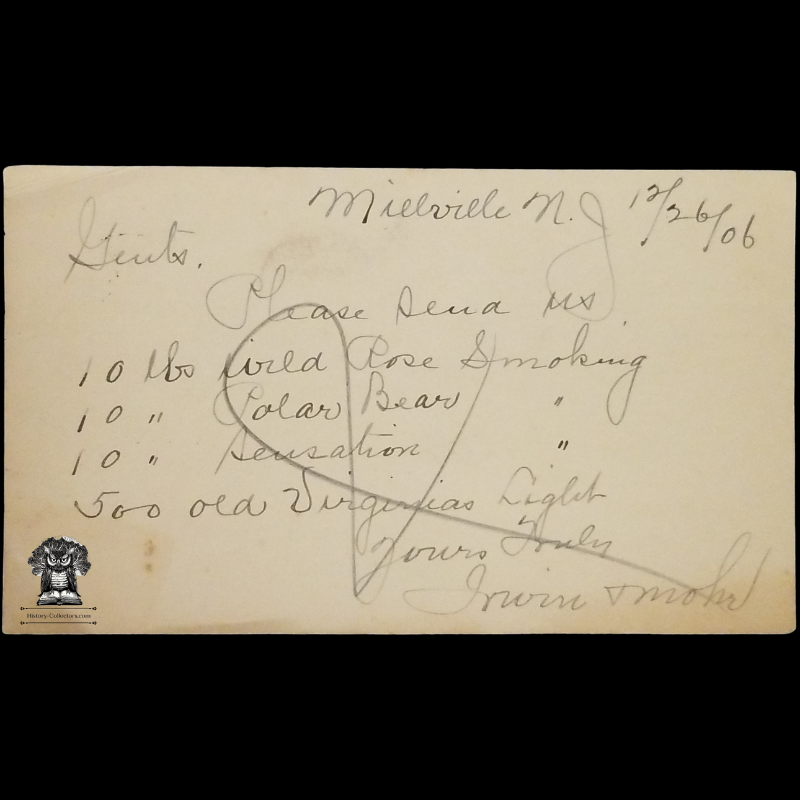 Millville N.J 12/26/06
Gents.
Please send us
10 lbs Wild Rose Smoking
10 " Polar Bear "
10 " Sensation "
500 old Virginias Light
Yours Truly
Irwin & Mohr
History-Collectors.com